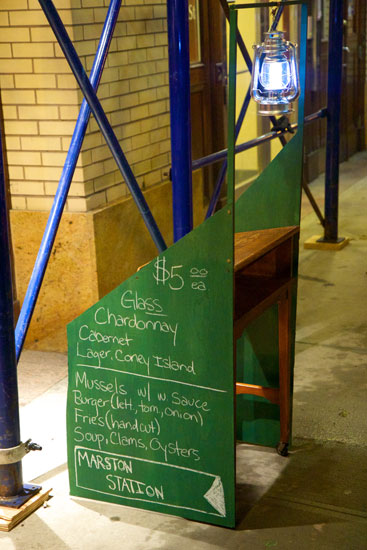 $5 00 ea
Glass
Chardonnay
Cabernet
Lager, Coney Island
Mussels, w/ w sauce
Burger (lett, tom, onion)
Frie's (hand cut)
Soup, Clams, Oysters
MARSTON
STATION